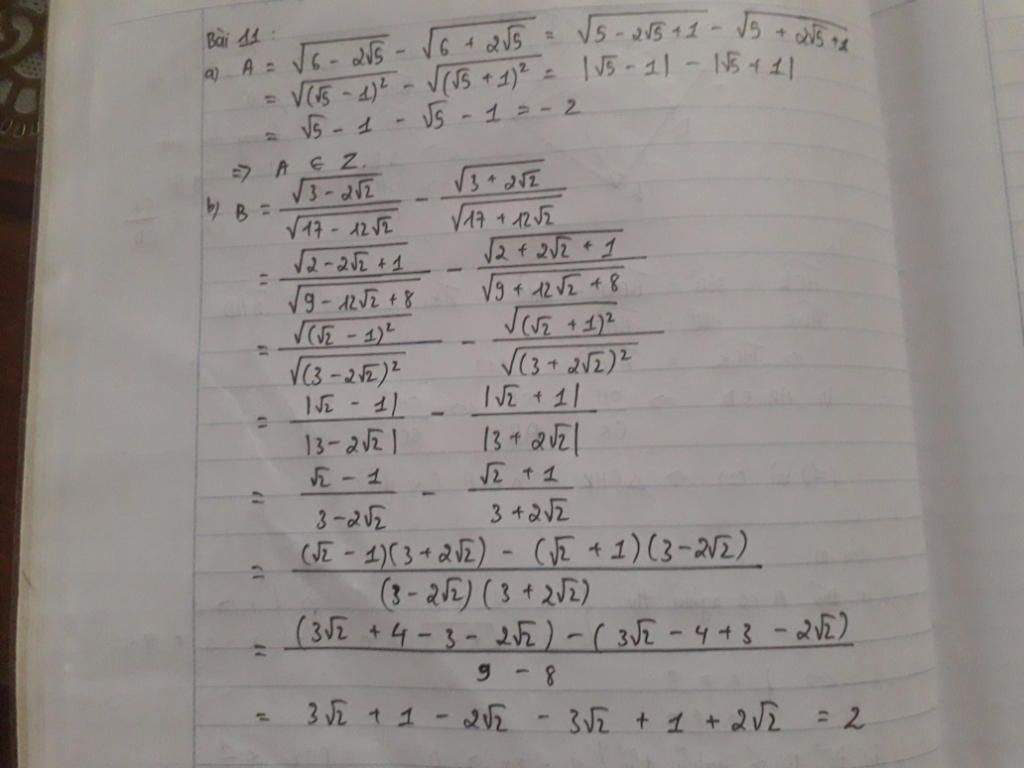 Bài 11:
a) A = √(6 - 2√5) - √(6 + 2√5) = √(5 - 2√5 + 1) - √(5 + 2√5 + 1)
= √((√5 - 1)²) - √((√5 + 1)²) = |√5 - 1| - |√5 + 1|
= √5 - 1 - √5 - 1 = - 2
=> A ∈ Z.
b) B = √(3 - 2√2) / √(17 - 12√2) - √(3 + 2√2) / √(17 + 12√2)
= √(2 - 2√2 + 1) / √(9 - 12√2 + 8) - √(2 + 2√2 + 1) / √(9 + 12√2 + 8)
= √((√2 - 1)²) / √((3 - 2√2)²) - √((√2 + 1)²) / √((3 + 2√2)²)
= |√2 - 1| / |3 - 2√2| - |√2 + 1| / |3 + 2√2|
= (√2 - 1) / (3 - 2√2) - (√2 + 1) / (3 + 2√2)
= ((√2 - 1)(3 + 2√2) - (√2 + 1)(3 - 2√2)) / ((3 - 2√2)(3 + 2√2))
= ((3√2 + 4 - 3 - 2√2) - (3√2 - 4 + 3 - 2√2)) / (9 - 8)
= 3√2 + 1 - 2√2 - 3√2 + 1 + 2√2 = 2